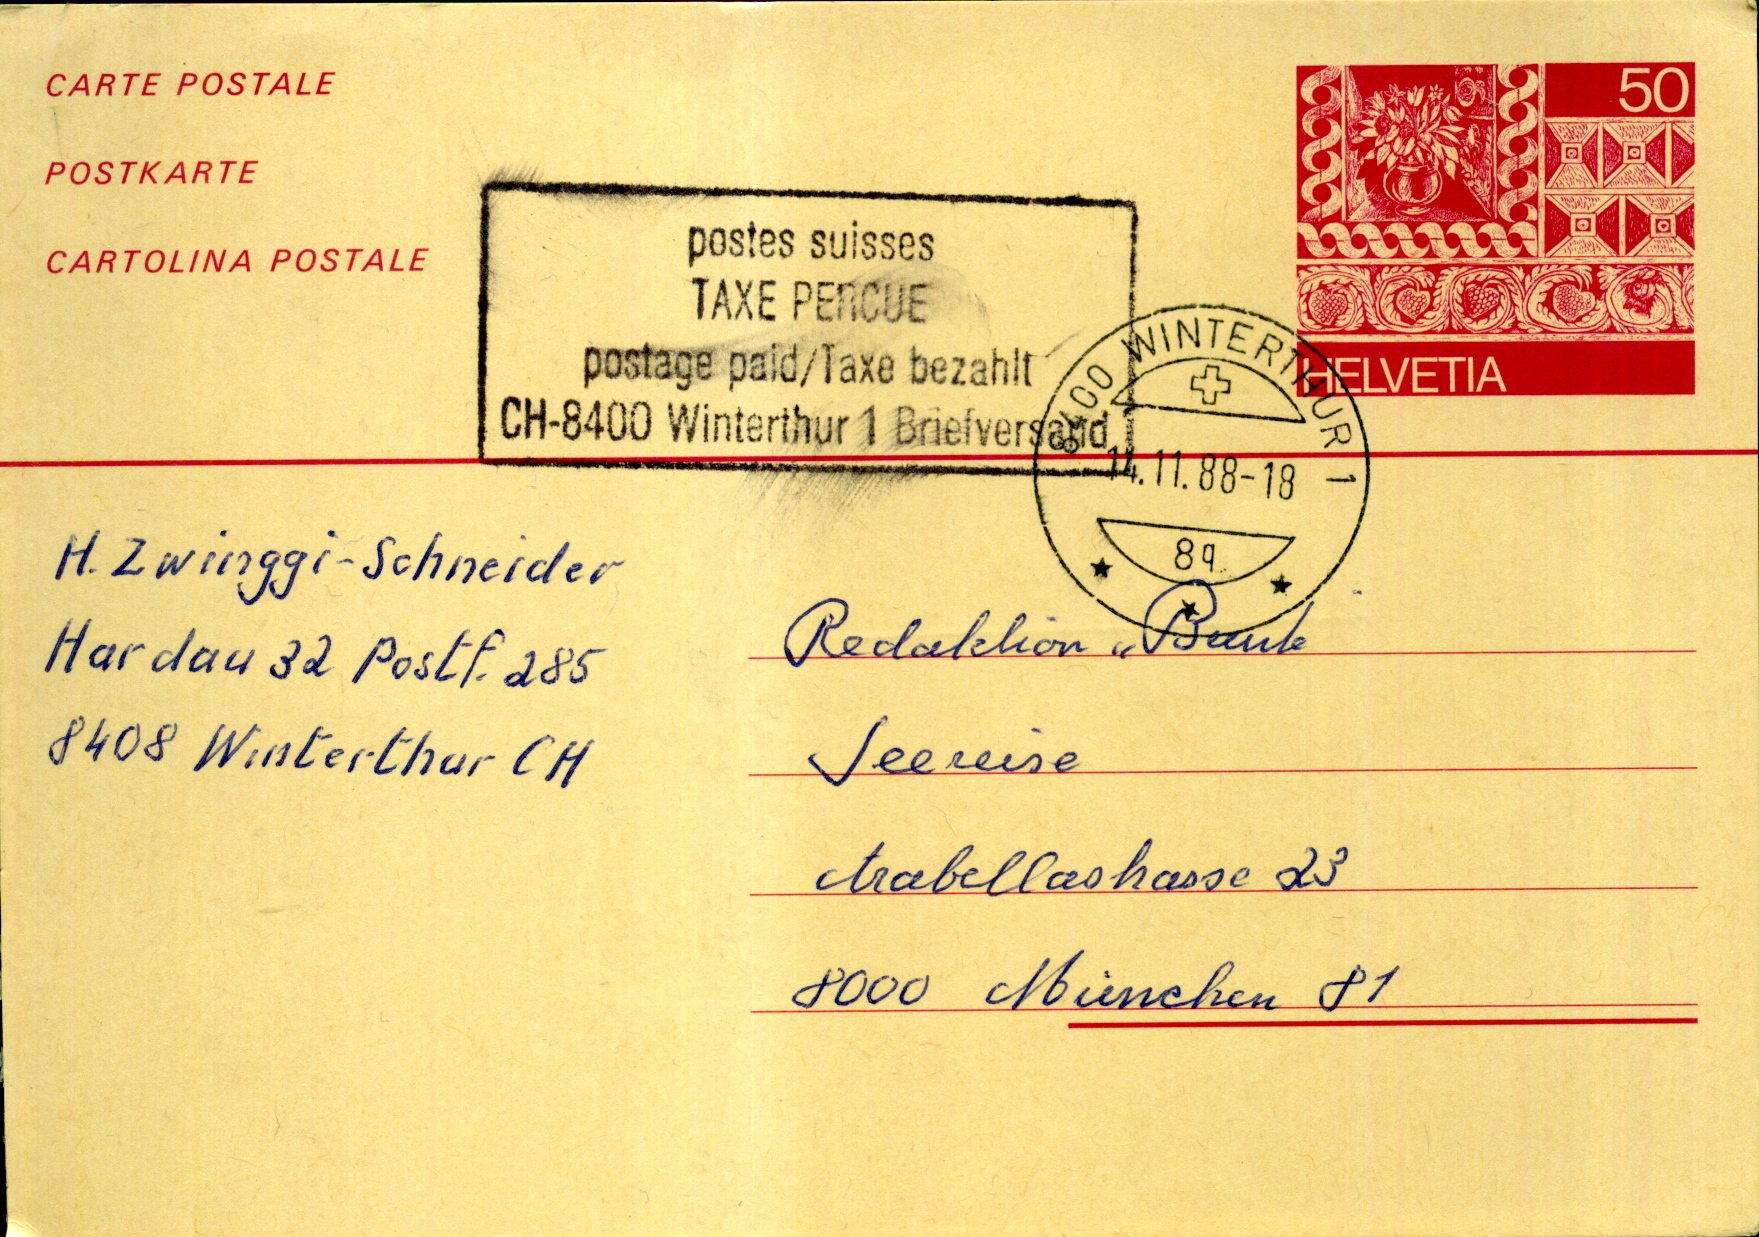 CARTE POSTALE
POSTKARTE
CARTOLINA POSTALE
50
HELVETIA
postes suisses
TAXE PERCUE
postage paid/Taxe bezahlt
CH-8400 Winterthur 1 Briefversand
8400 WINTERTHUR 1
14.11.88-18
8q
H. Zwinggi-Schneider
Hardau 32 Postf. 285
8408 Winterthur CH
Redaktion „Bunte
Seereise
Arabellastrasse 23
8000 München 81